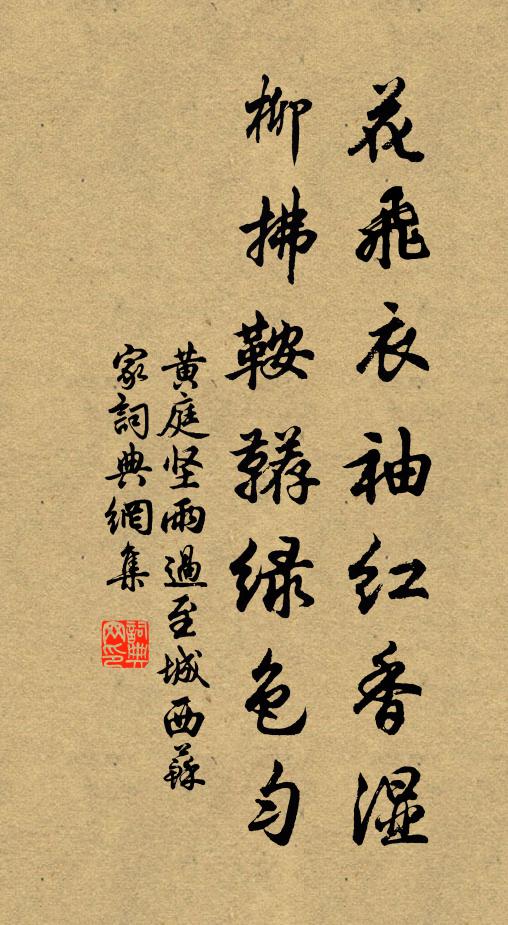 花飛衣袖紅香湿
柳拂鞍韉緑色匀
黄庭坚雨過至城西蘇
家詞典網集
詞典网印